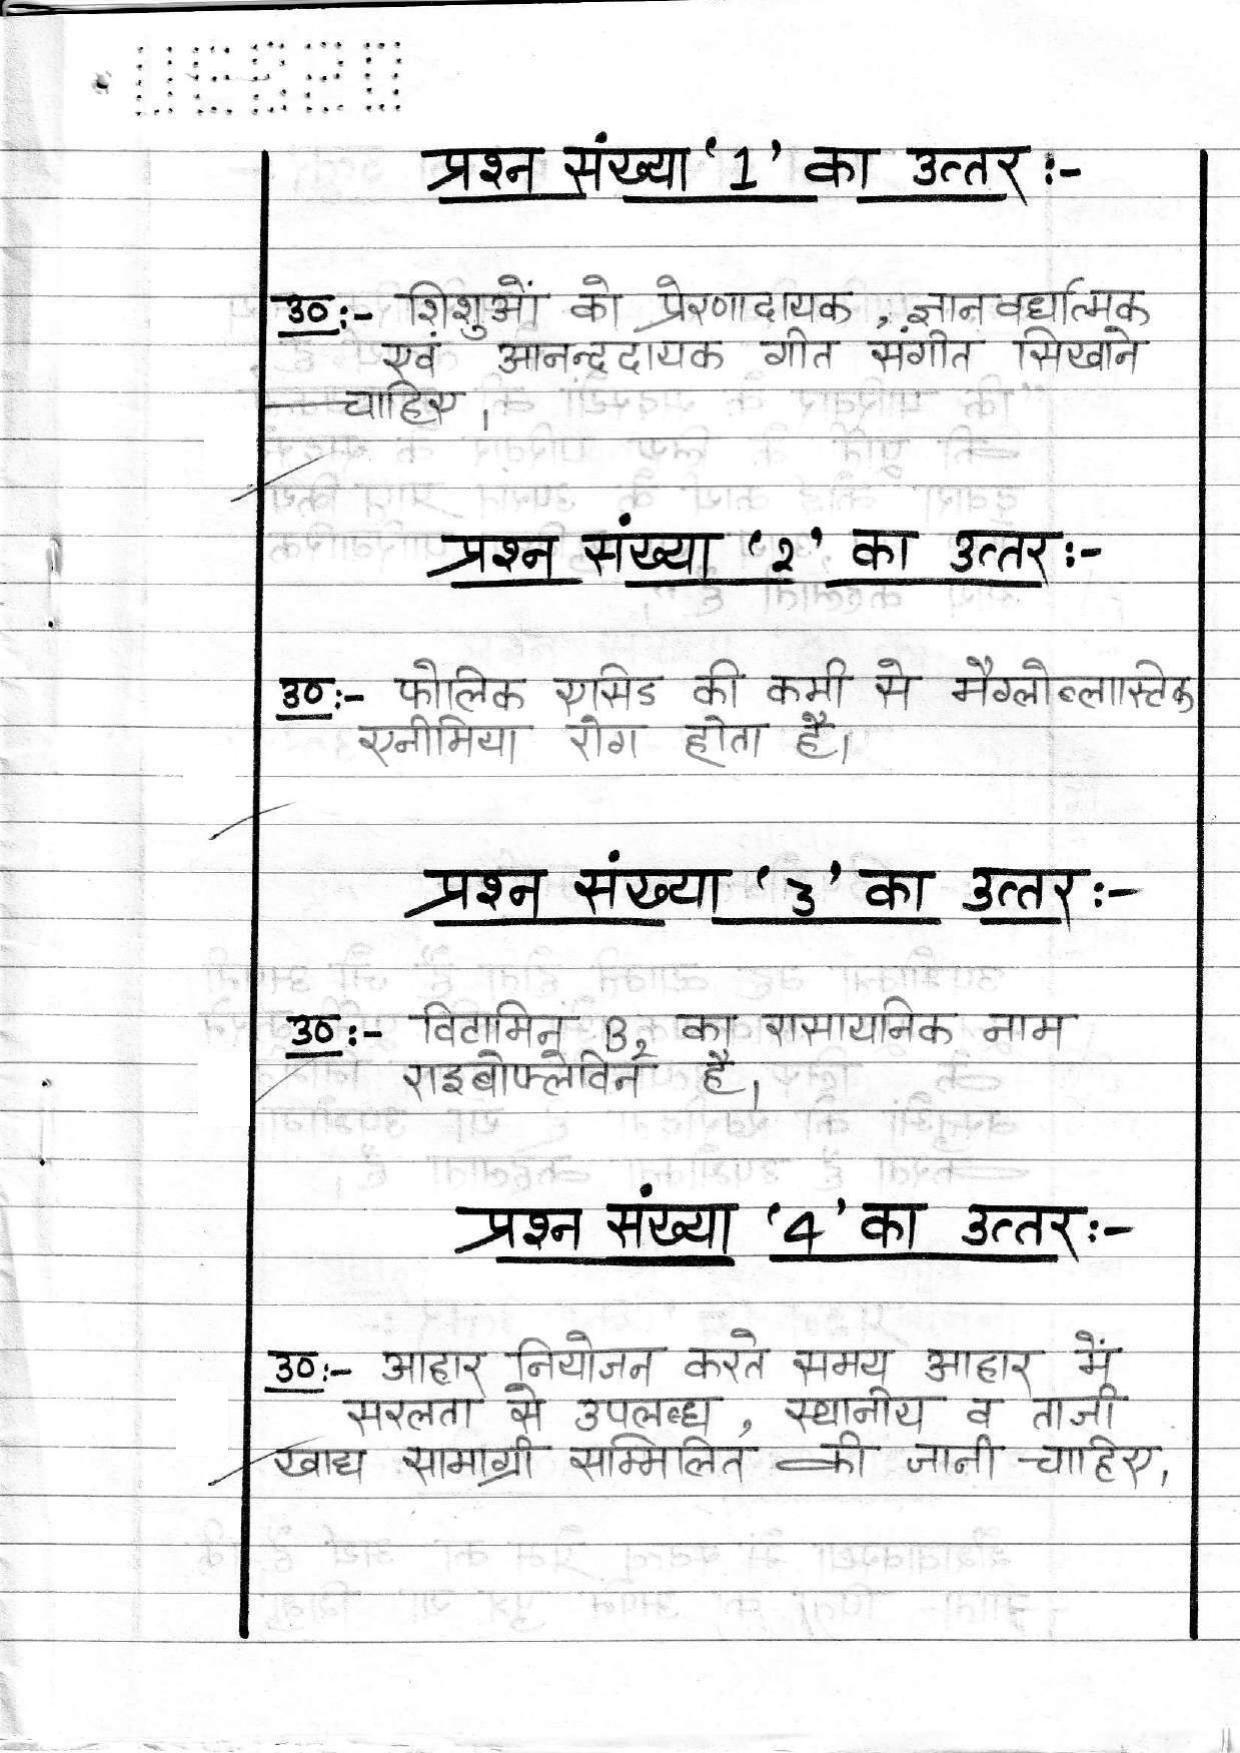 प्रश्न संख्या '1' का उत्तर :-
उ० :- शिशुओं को प्रेरणादायक , ज्ञानवर्धात्मक
एवं आनन्ददायक गीत संगीत सिखाने
चाहिए।
प्रश्न संख्या '2' का उत्तर :-
उ० :- फोलिक एसिड की कमी से मैग्लोब्लास्टिक
एनीमिया रोग होता है।
प्रश्न संख्या '3' का उत्तर :-
उ० :- विटामिन B₂ का रासायनिक नाम
राइबोफ्लेविन है।
प्रश्न संख्या '4' का उत्तर :-
उ० :- आहार नियोजन करते समय आहार में
सरलता से उपलब्ध , स्थानीय व ताजी
खाद्य सामाग्री सम्मिलित की जानी चाहिए।